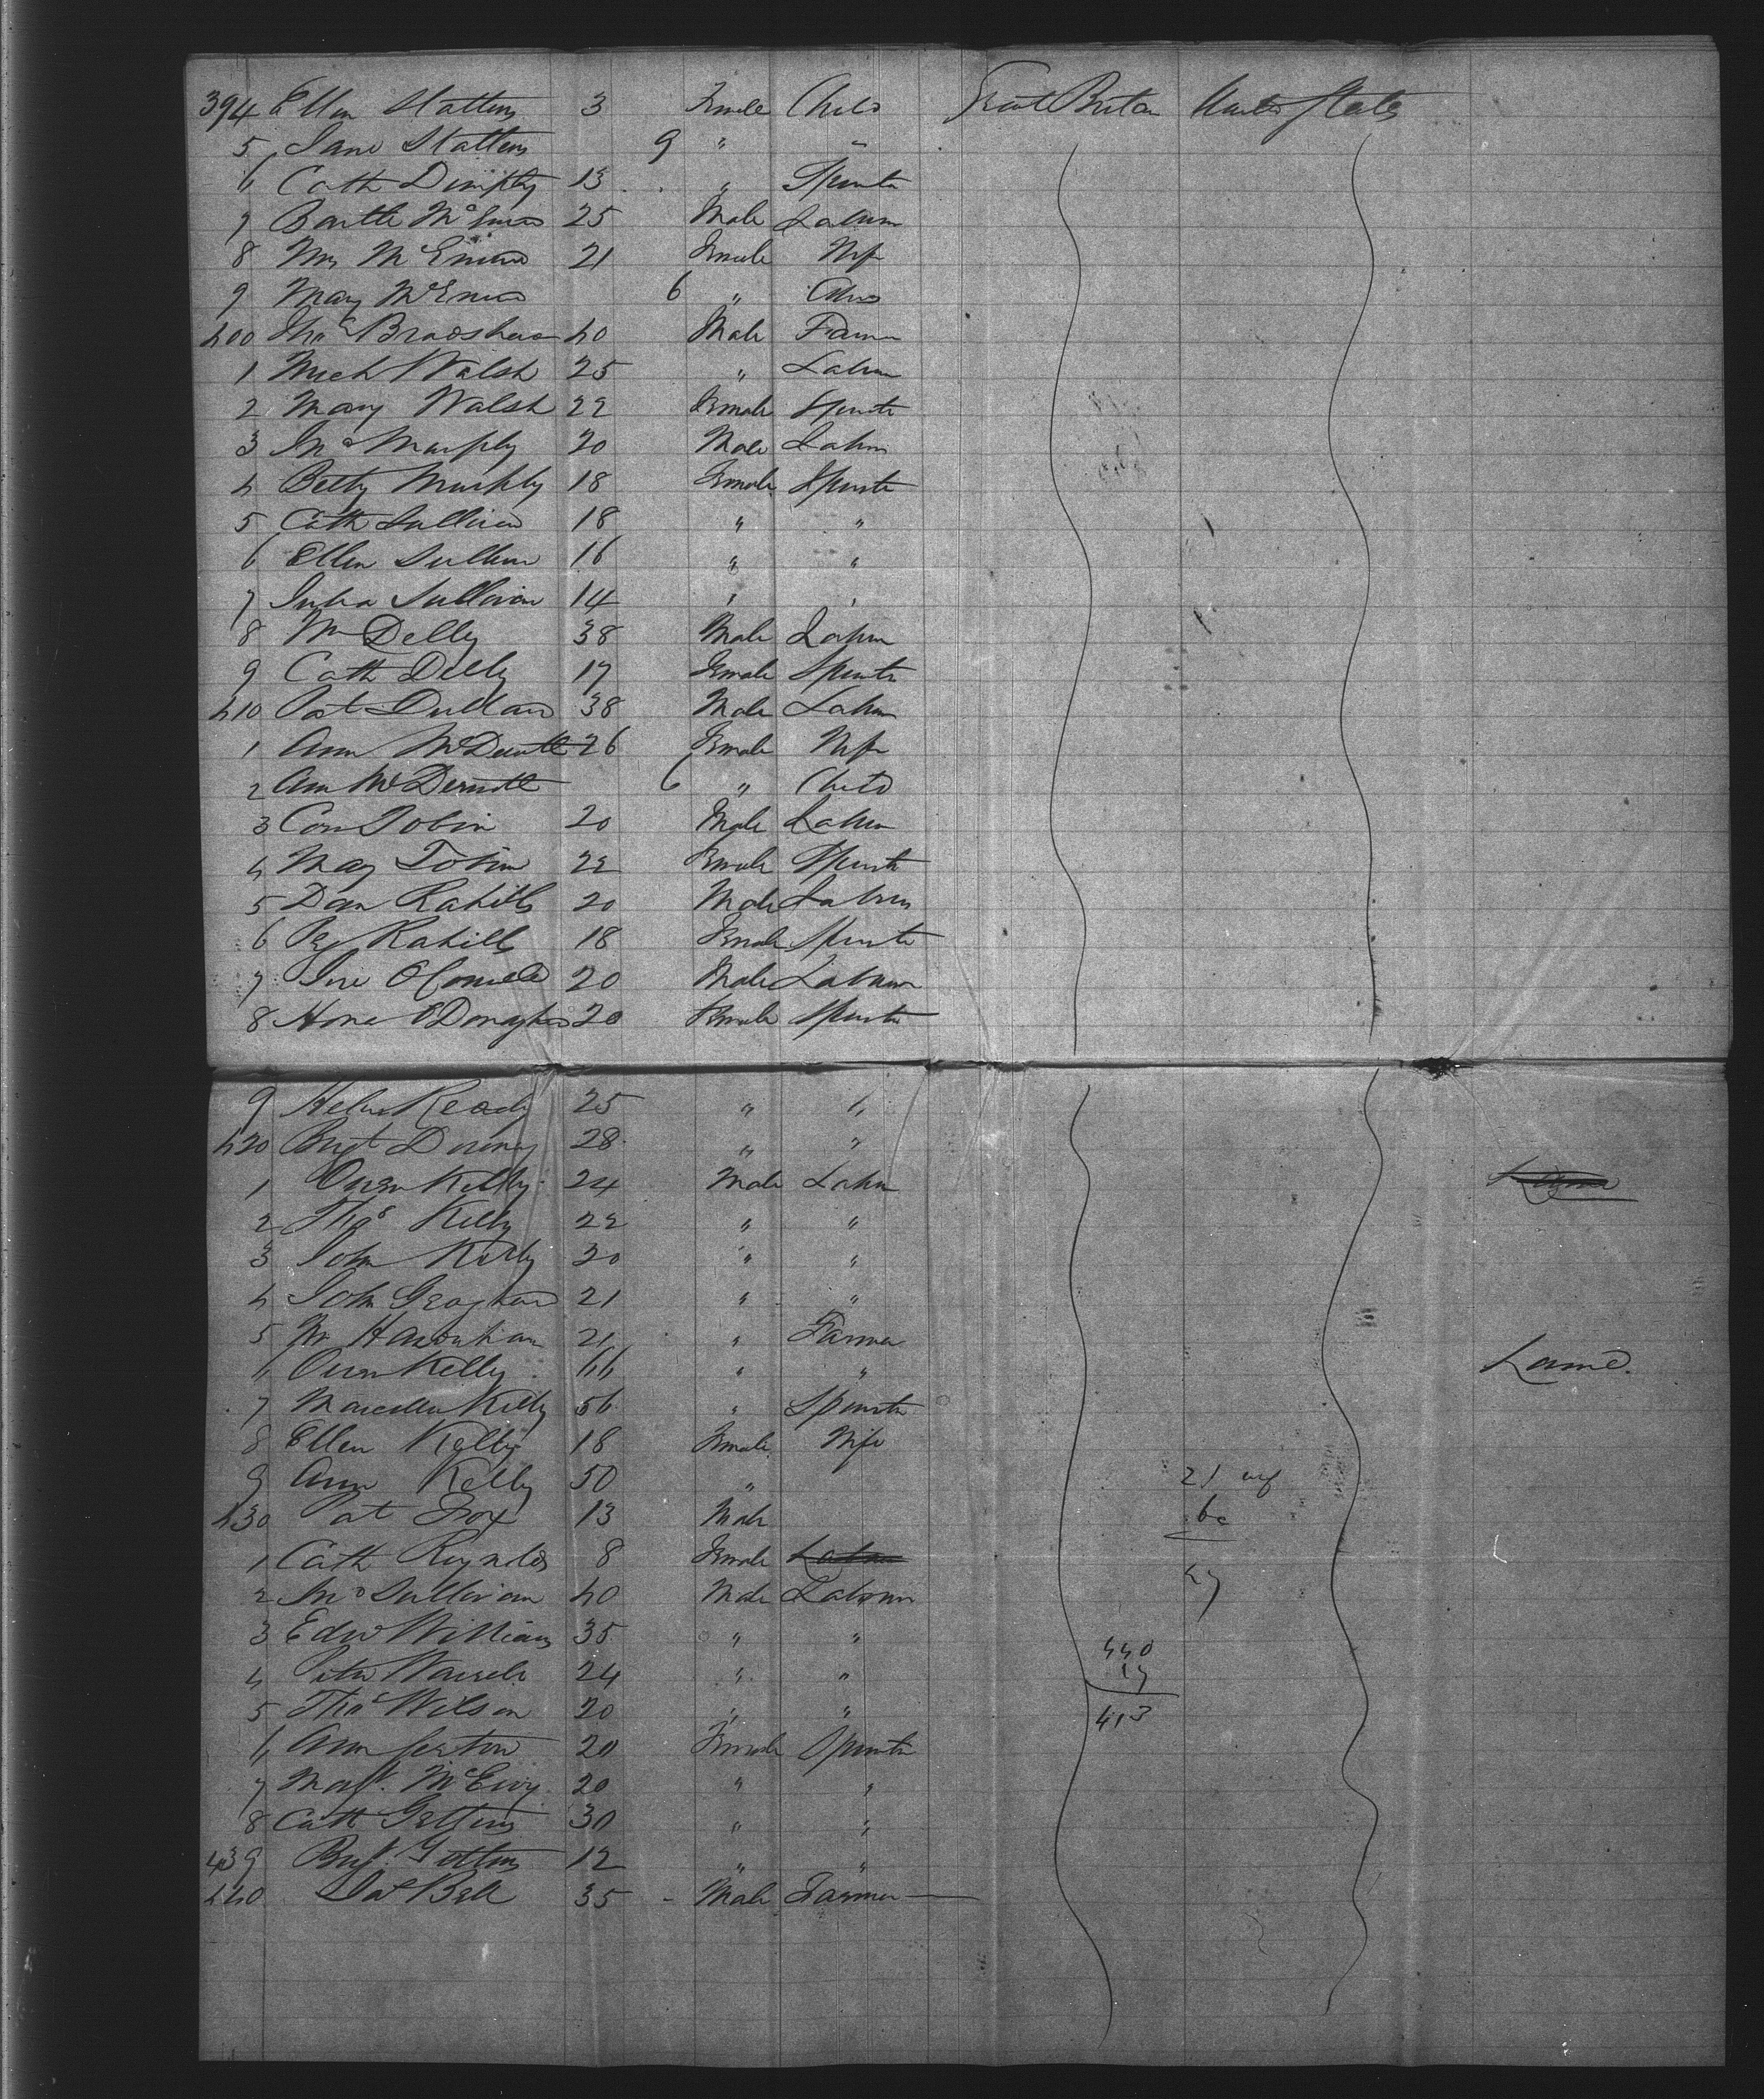 394 Ellen Stattens 3 Female Child Great Britain United States
5 Jane Stattens 9 " "
6 Cath Dimpsey 13 " Spinster
7 Barth 25 Male Labourer
8 Mrs McEniree 21 Female Wife
9 Mary 6 " Child
400 Thos Bradshaw 40 Male Farmer
1 Mich Walsh 25 " Labourer
2 Mary Walsh 22 Female Spinster
3 Jno Murphy 20 Male Labour
4 Betty Murphy 18 Female Spinster
5 Cath Sullivan 18 " "
6 Ellen Sullivan 16 " "
7 Julia Sullivan 14 " "
8 Wm Delly 38 Male Labour
9 Cath Delly 17 Female Spinster
410 Pat 38 Male Labour
1 Ann McDermott 26 Female Wife
2 Ann McDermott 6 " Child
3 Con Tobin 20 Male Labour
4 Mary Tobin 22 Female Spinster
5 Dan Rahilly 20 Male Labour
6 Peg Rahilly 18 Female Spinster
7 O'Connell 20 Male Labourer
8 Hona O'Donaghue 20 Female Spinster
9 Helen Ready 25 " "
420 Brgt 28 " "
1 Owen Kelly 24 Male Labour
2 Thos Kelly 22 " "
3 John Kelly 20 " "
4 John Geaghan 21 " "
5 21 " Farmer
6 Owen Kelly 66 " " Lame.
7 Marcella Kelly 56 " Spinster
8 Ellen Kelly 18 Female Wife
9 Ann Kelly 50 " 21
430 Pat Fox 13 Male 6c
1 Cath Reynolds 8 Female Labour
2 Jno Sullivan 40 Male Labourer 27
3 Edwd Williams 35 " "
440
4 Peter 24 " "
17
5 Thos Wilson 20 " "
413
6 Ann 20 Female Spinster
7 Margt. McEvoy 20 " "
8 Cath Gettins 30 " "
439 Brgt. Gettins 12 " "
440 Jas Bell 35 - Male Farmer